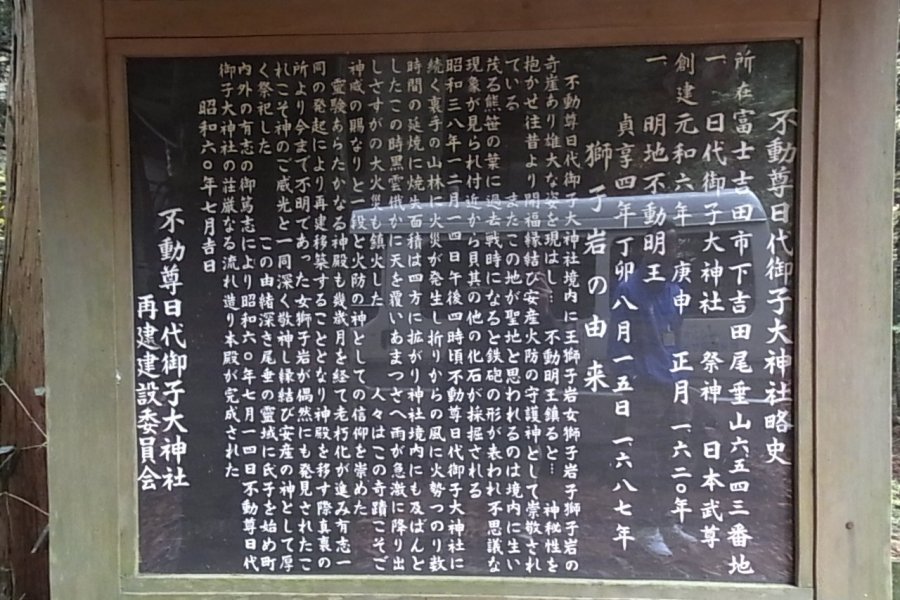 不動尊日代御子大神社略史
所在富士吉田市下吉田尾垂山六五四三番地
一、日代御子大神社 祭神 日本武尊
創建元和六年庚申 正月 一六二〇年
一、明地不動明王
貞享四年丁卯八月一五日 一六八七年
獅子岩の由来
不動尊日代御子大神社境内に王獅子岩女獅子岩子獅子岩の
奇崖あり雄大な姿を現はし… 不動明王鎮ると… 神秘性を
抱かせ往昔より開福縁結び安産火防の守護神として崇敬され
ている またこの地が聖地と思われるのは境内に生い
茂る熊笹の葉に過去戦時になると鉄砲の形が表われ不思議な
現象が見られ付近から貝其の他の化石が採掘される
昭和三八年一二月一四日午後四時頃不動尊日代御子大神社に
続く裏手の山林に火災が発生し折りからの風に火勢つのり数
時間の延焼に焼失面積は四方に拡がり神社境内にも及ばんと
したこの時黒雲俄かに天を覆いあまつさへ雨が急激に降り出
しさすがの大火災も鎮火した 人々はこの奇蹟こそご
神威の賜なりと一段と火防の神としての信仰を崇めた
霊験あらたかなる神殿も幾歳月を経て老朽化が進み有志一
同の発起により再建移築することとなり神殿を移す際真裏の
所より今まで不明であった女獅子岩が偶然にも発見されたこ
れこそ神のご威光と一同深く敬神し縁結び安産の神として厚
く祭祀した この由緒深き尾垂の霊域に氏子を始め町
内外の有志の御篤志により昭和六〇年七月一四日不動尊日代
御子大神社の荘厳なる流れ造り本殿が完成された
昭和六〇年七月吉日
不動尊日代御子大神社
再建建設委員会